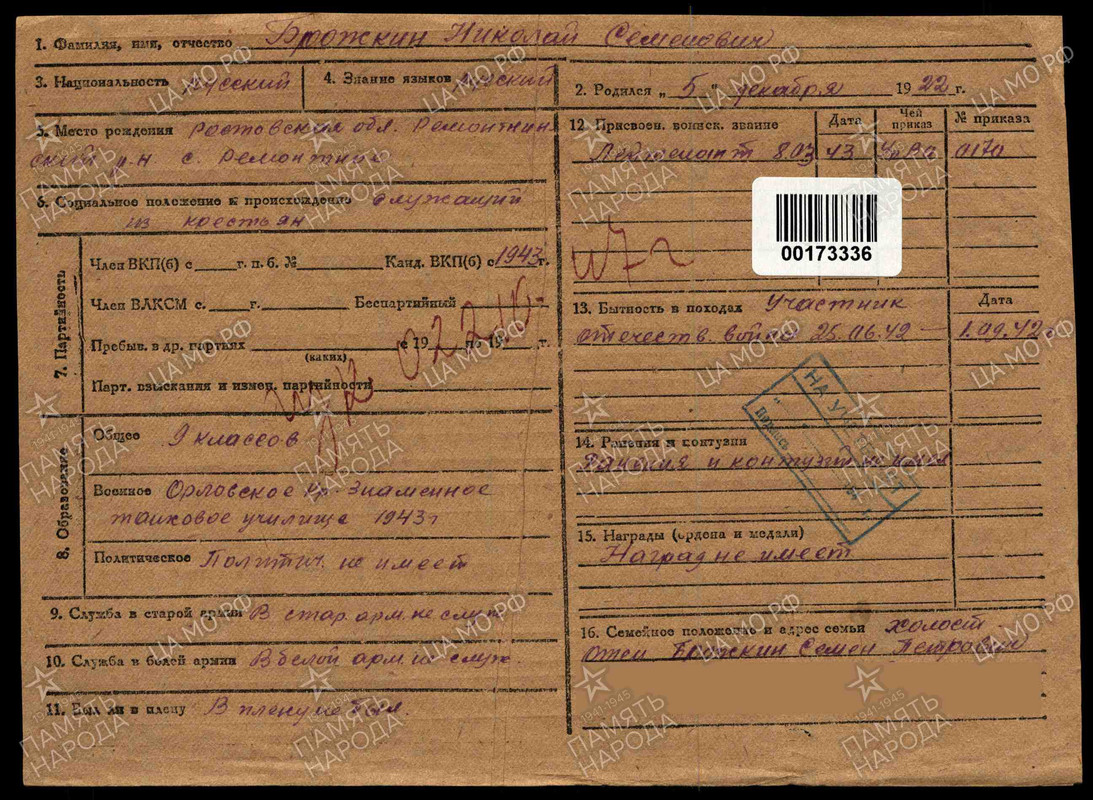 1. Фамилия, имя, отчество Брожкин Николай Семенович
3. Национальность русский
4. Знание языков русский
2. Родился „ 5 " декабря 1922 г.
5. Место рождения Ростовская обл. Ремонтнен
ский р-н с. Ремонтное
6. Социальное положение и происхождение служащий
из крестьян
7. Партийность
Член ВКП(б) с г. п. б. № Канд. ВКП(б) с 1943 г.
Член ВЛКСМ с. г. Беспартийный
Пребыв. в др. партиях с 19 по 19 г.
(каких)
Парт. взыскания и измен. партийности
8. Образование
Общее 9 классов
Военное Орловское кр. Знаменное
танковое училище 1943 г
Политическое Политич. не имеет
9. Служба в старой армии В стар. арм. не служ
10. Служба в белой армии В белой арм. не служ
11. Был ли в плену В плену не был.
12. Присвоен. воинск. звание Дата Чей приказ № приказа
Лейтенант 8.03 43 0170
00173336
13. Бытность в походах Участник Дата
отечеств. войны 25.06.42 — 1.09.42
14. Ранения и контузии
Ранения и контузии не имел
15. Награды (ордена и медали)
Наград не имеет
16. Семейное положение и адрес семьи холост
отец Брожкин Семен Петрович
НА УЧ
ПАМЯТЬ НАРОДА
1941-1945
ЦА МО РФ